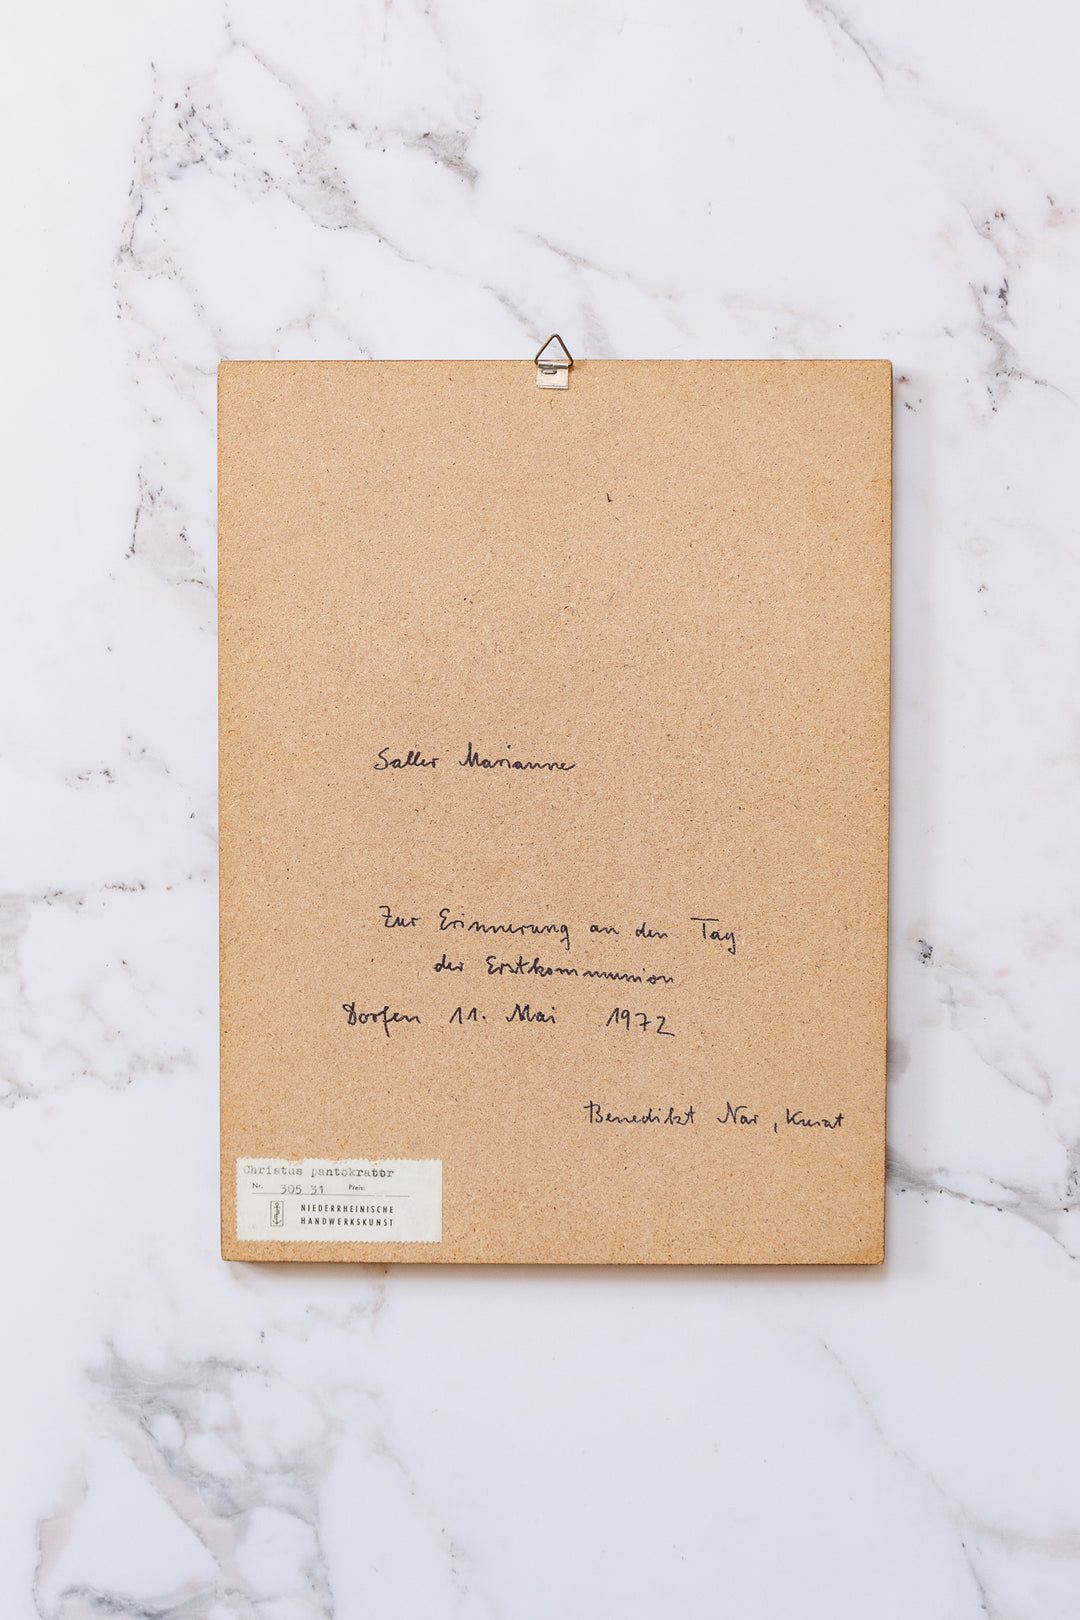 Saller Marianne
Zur Erinnerung an den Tag
der Erstkommunion
Dorfen 11. Mai 1972
Benedikt Nar, Kurat
Christus pantokrator
Nr. 305 31 Preis:
NIEDERRHEINISCHE
HANDWERKSKUNST